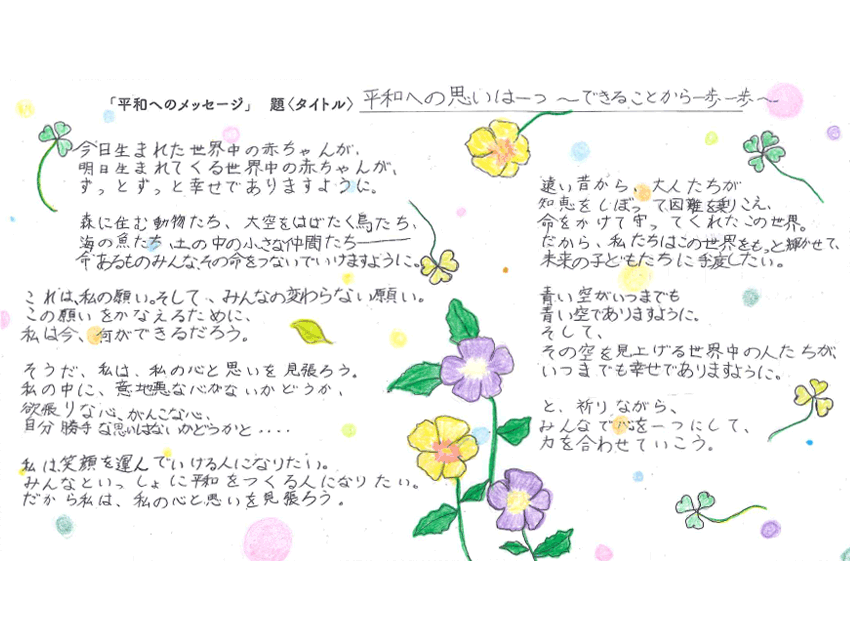 「平和へのメッセージ」 題〈タイトル〉 平和への思いは一つ ～できることから一歩一歩～
今日生まれた世界中の赤ちゃんが、
明日生まれてくる世界中の赤ちゃんが、
ずっとずっと幸せでありますように。
森に住む動物たち、大空をはばたく鳥たち、
海の魚たち、土の中の小さな仲間たち――
命あるものみんな、その命をつないでいけますように。
これは、私の願い。そして、みんなの変わらない願い。
この願いをかなえるために、
私は今、何ができるだろう。
そうだ、私は、私の心と思いを見張ろう。
私の中に、意地悪な心がないかどうか、
欲張りな心、がんこな心、
自分勝手な思いはないかどうかと・・・・
私は、笑顔を運んでいける人になりたい。
みんなといっしょに平和をつくる人になりたい。
だから私は、私の心と思いを見張ろう。
遠い昔から、大人たちが
知恵をしぼって困難を乗りこえ、
命をかけて守ってくれたこの世界。
だから、私たちはこの世界をもっと輝かせて、
未来の子どもたちに手渡したい。
青い空がいつまでも
青い空でありますように。
そして、
その空を見上げる世界中の人たちが、
いつまでも幸せでありますように。
と、祈りながら、
みんなで心を一つにして、
力を合わせていこう。